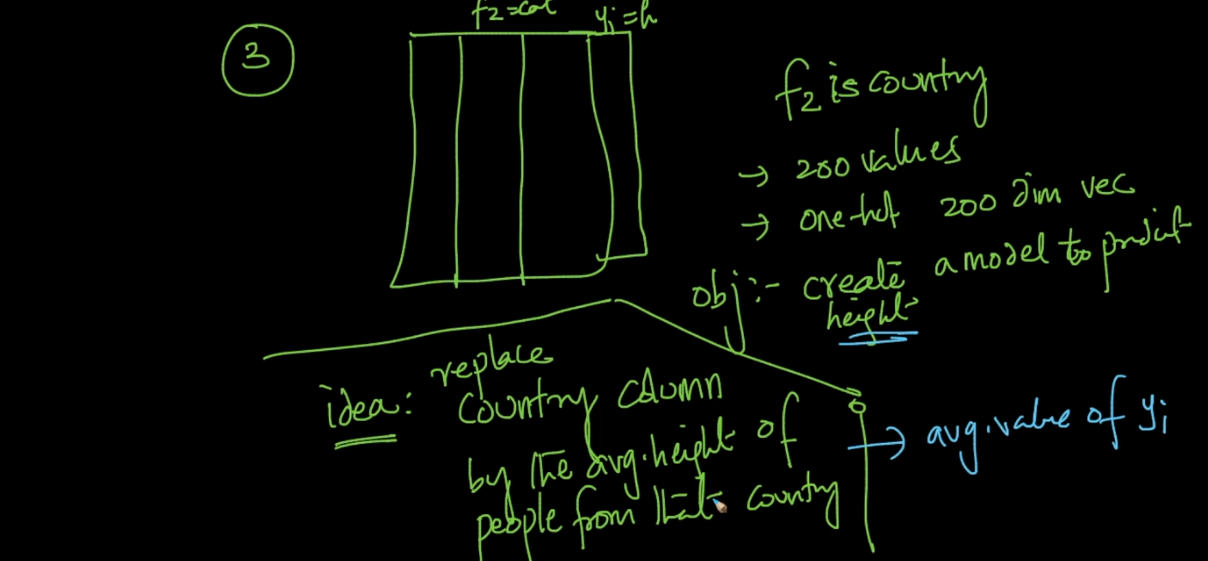 f2=cat yi=h
3
f2 is country
→ 200 values
→ one-hot 200 dim vec
obj:- create a model to predict
height
idea: replace
country column
by the avg. height of
people from that country
→ avg. value of yi